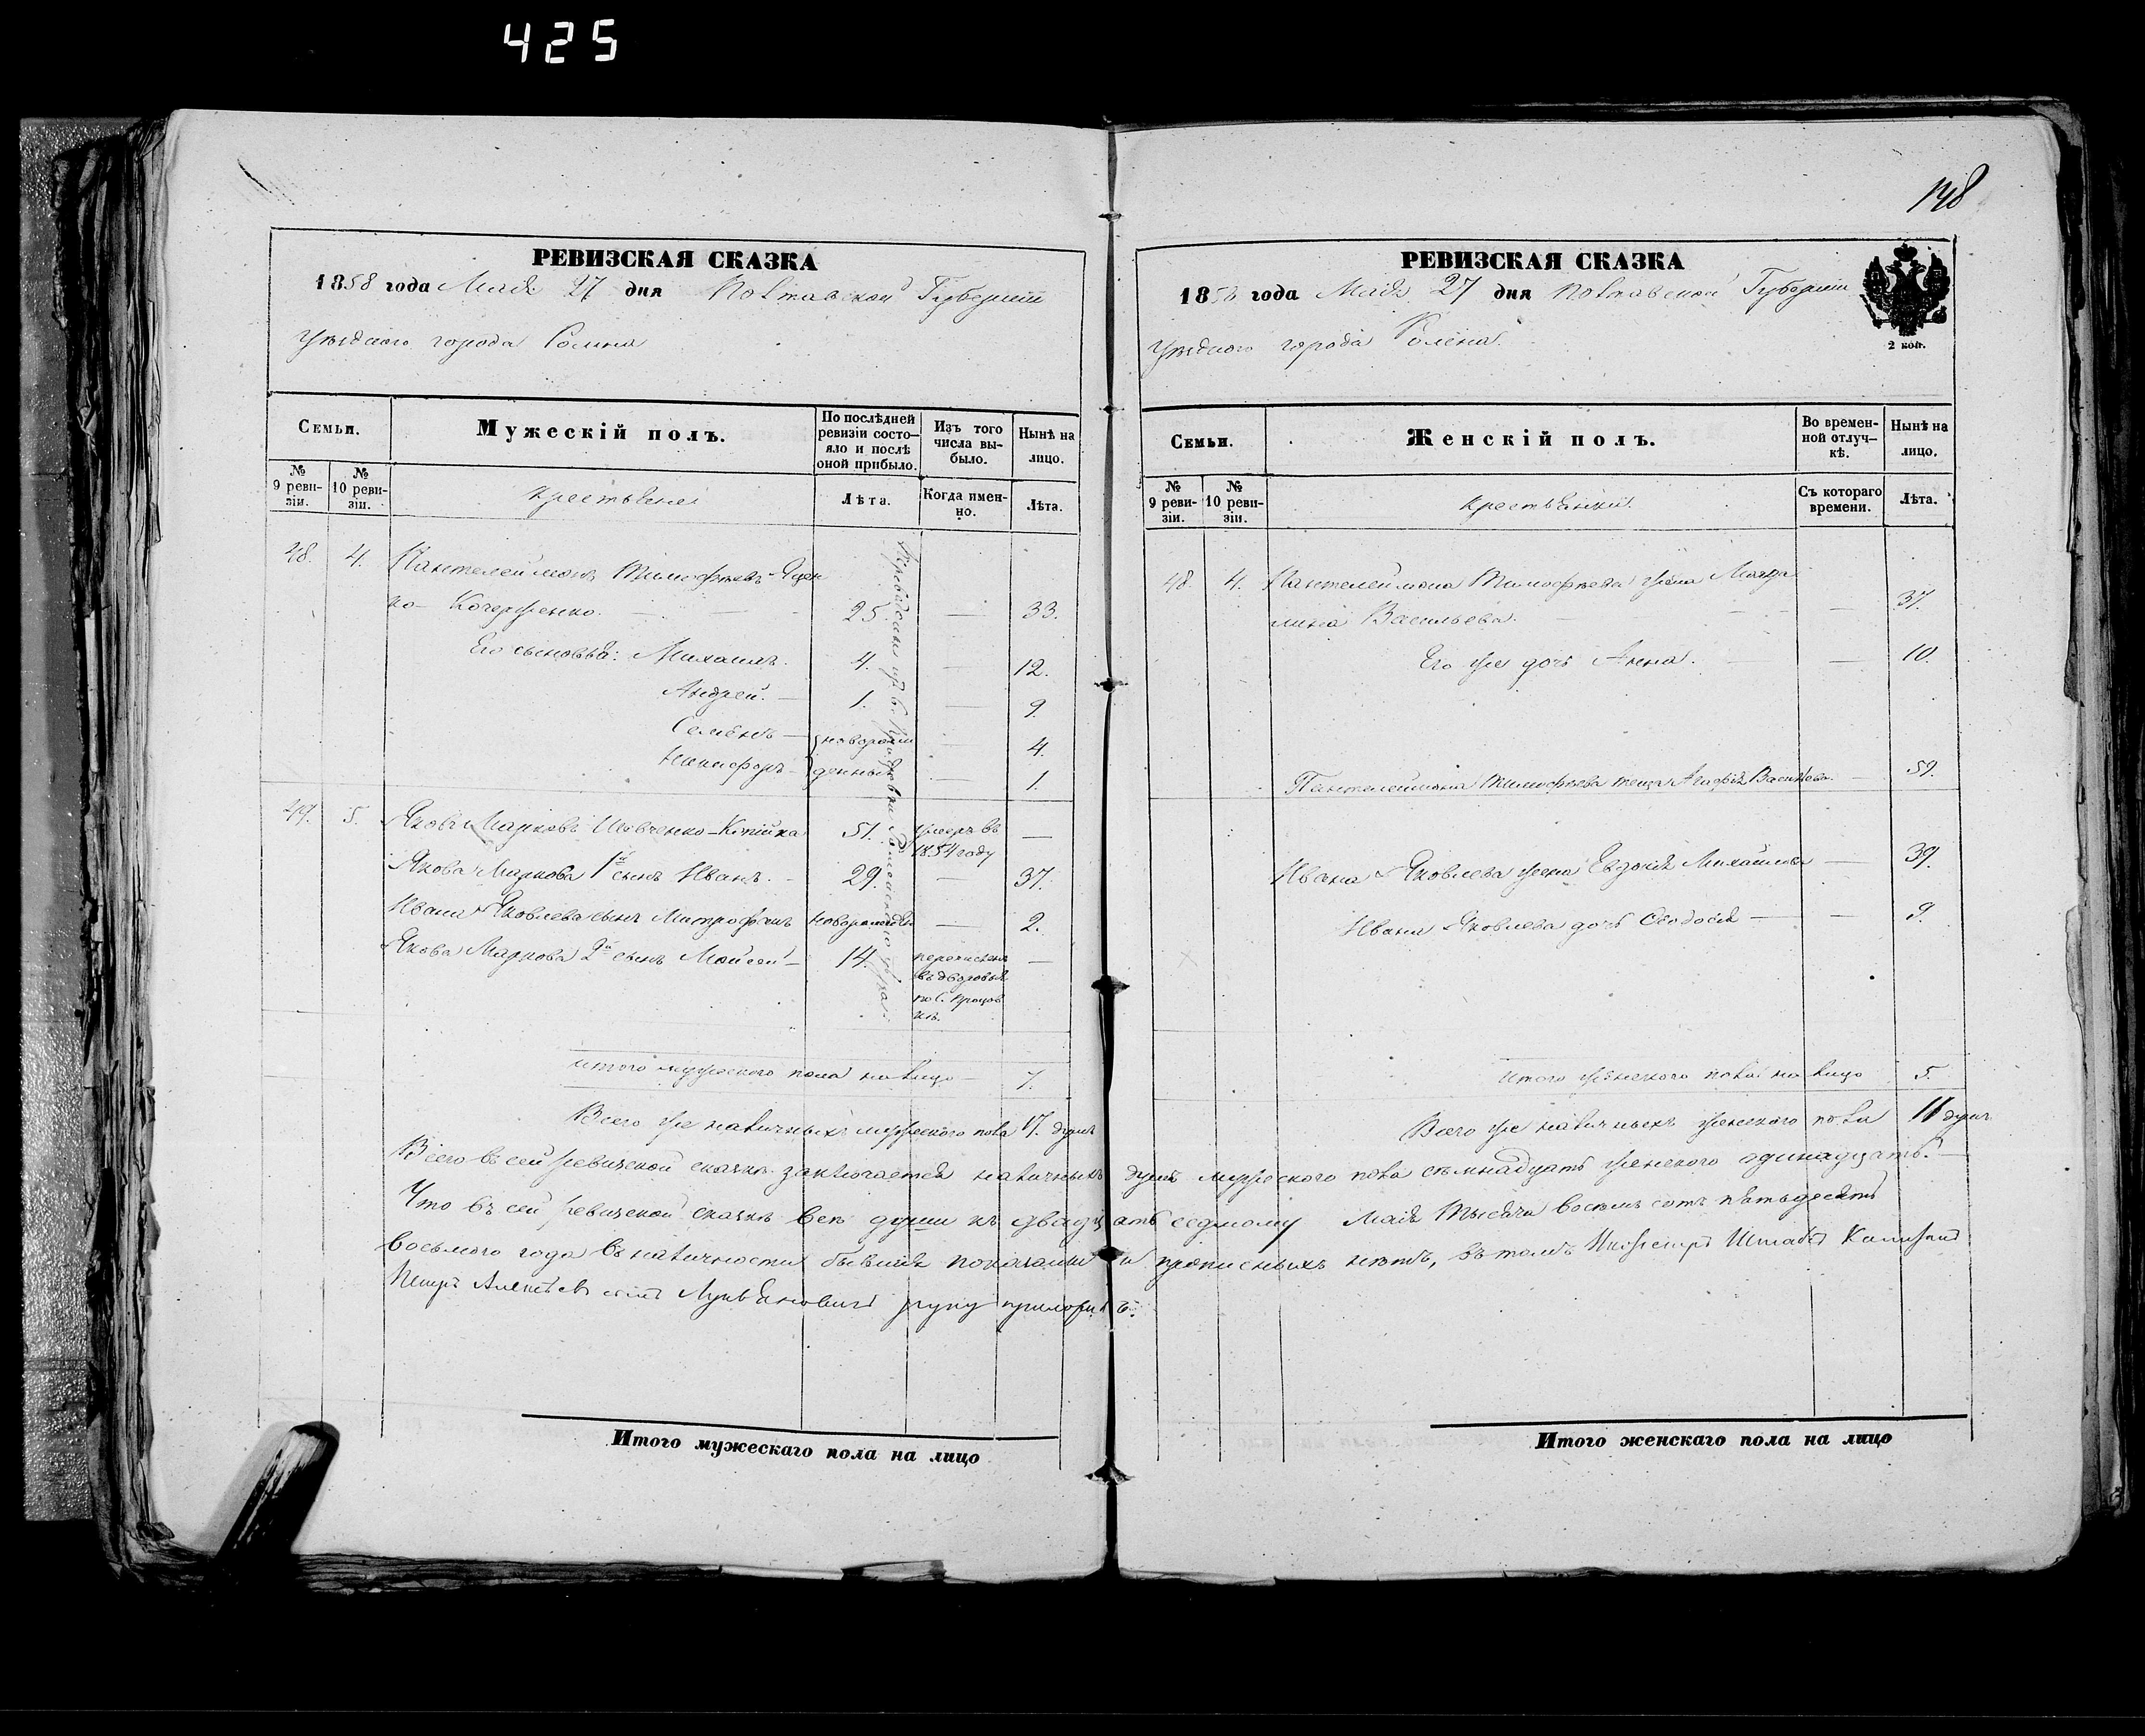 425
148
РЕВИЗСКАЯ СКАЗКА
1858 года Мая 27 дня Полтавской Губернии
уѣзднаго города Ромна
Семьи.
Мужескій полъ.
По послѣдней ревизіи состо-
яло и послѣ
оной прибыло.
Изъ того
числа вы-
было.
Нынѣ на
лицо.
№
9 реви-
зіи.
№
10 реви-
зіи.
крестьяне
Лѣта.
Когда имен-
но.
Лѣта.
48. 4. Пантелеймонъ Тимофѣевъ
ко- Кочерженко. 25. — 33.
Его сыновья: Михаилъ. 4. — 12.
Андрей. — 1. — 9.
Семенъ — новорож — 4.
Никифоръ — денные — 1.
49. 5. Яковъ Марковъ Шовченко-Копійка 51. умеръ въ —
1854 году
Якова Маркова 1й сынъ Иванъ. 29. — 37.
Ивана Яковлева сынъ Митрофанъ — 2.
Якова Маркова 2й сынъ Мойсей — 14. перечисленъ —
въ дворовые
по с.
итого мужеского пола на лицо 7.
Всего же наличныхъ мужеского пола 17. душъ
РЕВИЗСКАЯ СКАЗКА
1858 года Мая 27 дня Полтавской Губернии
уѣзднаго города Ромна.
2 коп.
Семьи.
Женскій полъ.
Во времен-
ной отлуч-
кѣ.
Нынѣ на
лицо.
№
9 реви-
зіи.
№
10 реви-
зіи.
крестьянки.
Съ котораго
времени.
Лѣта.
48. 4. Пантелеймона Тимофѣева жена Магда
лина Васильева. — 37.
Его же дочь Анна. — 10.
Пантелеймона Тимофѣева теща Агафія Васильева. — 59.
Ивана Яковлева жена Евдокія Михайлова — 39.
Ивана Яковлева дочь Феодосія — — 9.
итого женского пола на лицо 5.
Всего же наличныхъ женского пола 11 душъ
Всего въ сей ревизской сказкѣ заключается наличныхъ душъ мужеского пола семнадцать женского одинадцать. —
Что въ сей ревизской сказкѣ всѣ души къ двадцать седмому Мая тысяча восемь сотъ пятьдесятъ
восьмого года въ наличности бывшія показаны и прописныхъ нѣтъ, въ томъ Штабъ Капитанъ
Петръ Алексѣевъ сынъ Лукьяновичъ руку приложилъ.
Итого мужескаго пола на лицо
Итого женскаго пола на лицо